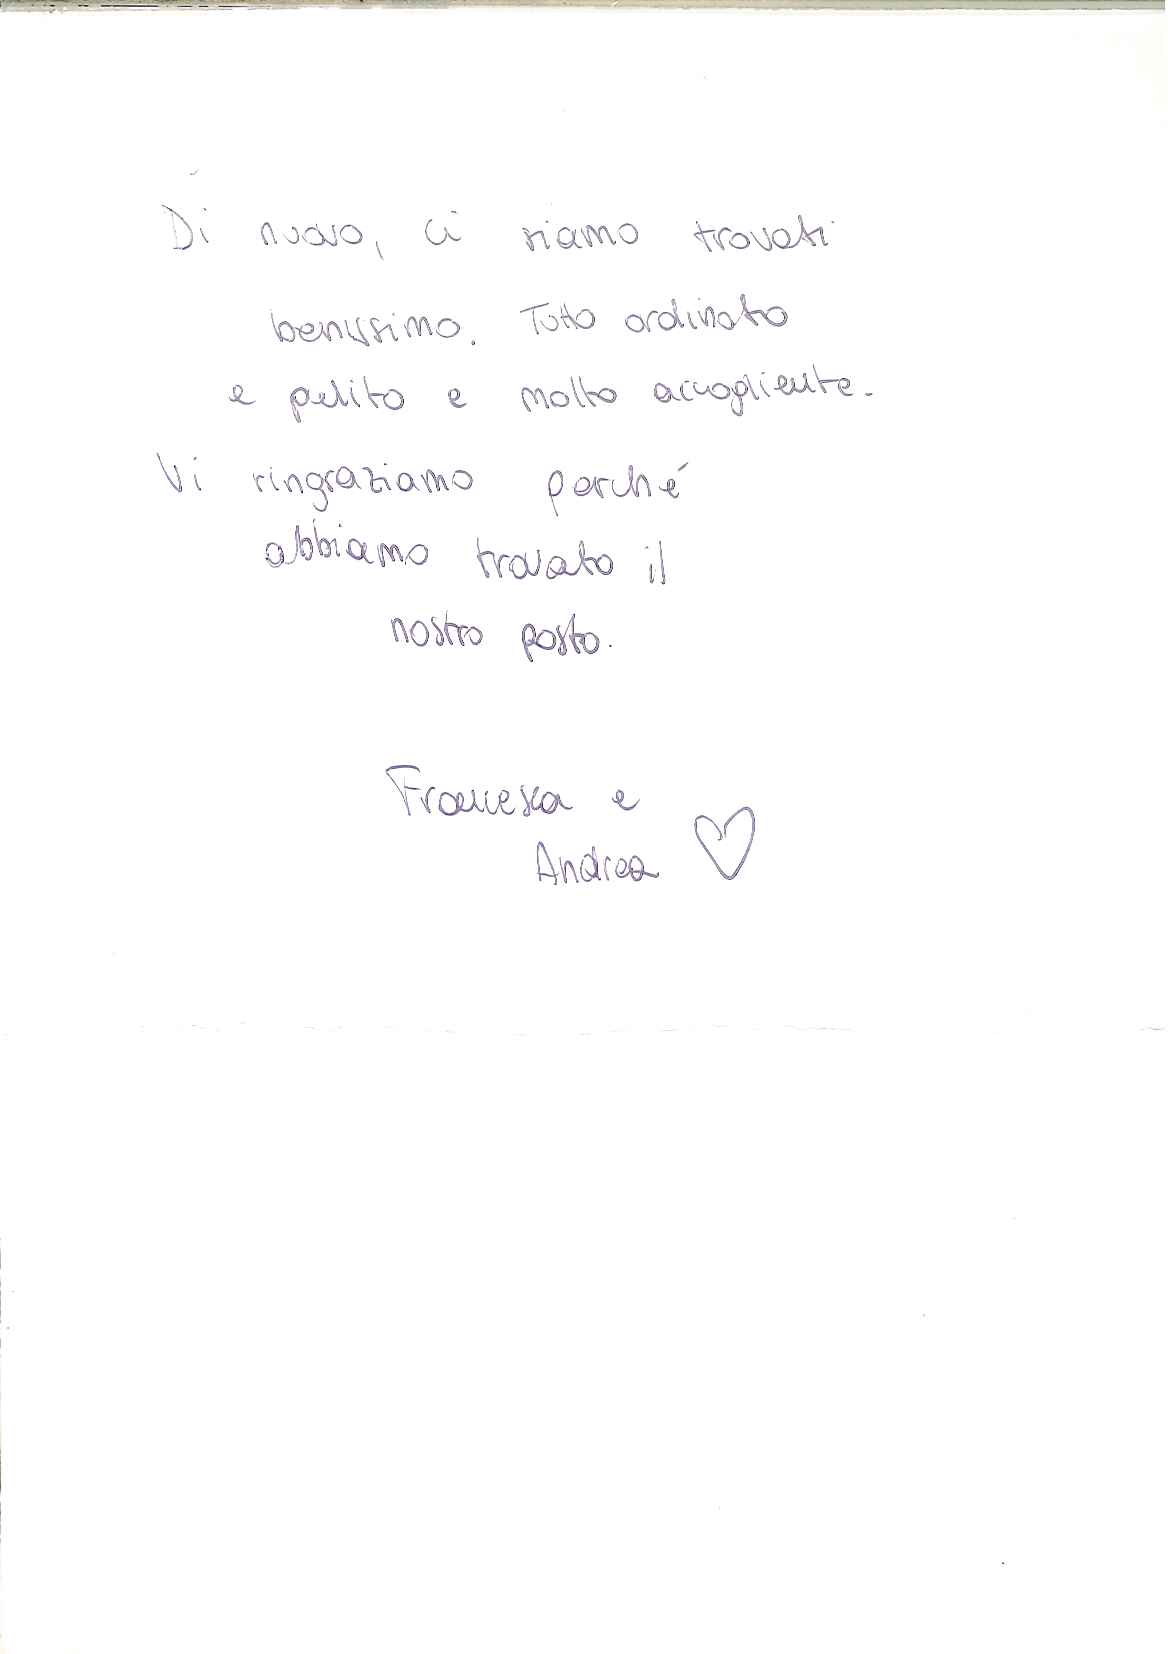 Di nuovo, ci siamo trovati
benissimo. Tutto ordinato
e pulito e molto accogliente.
Vi ringraziamo perché
abbiamo trovato il
nostro posto.
Francesca e
Andrea